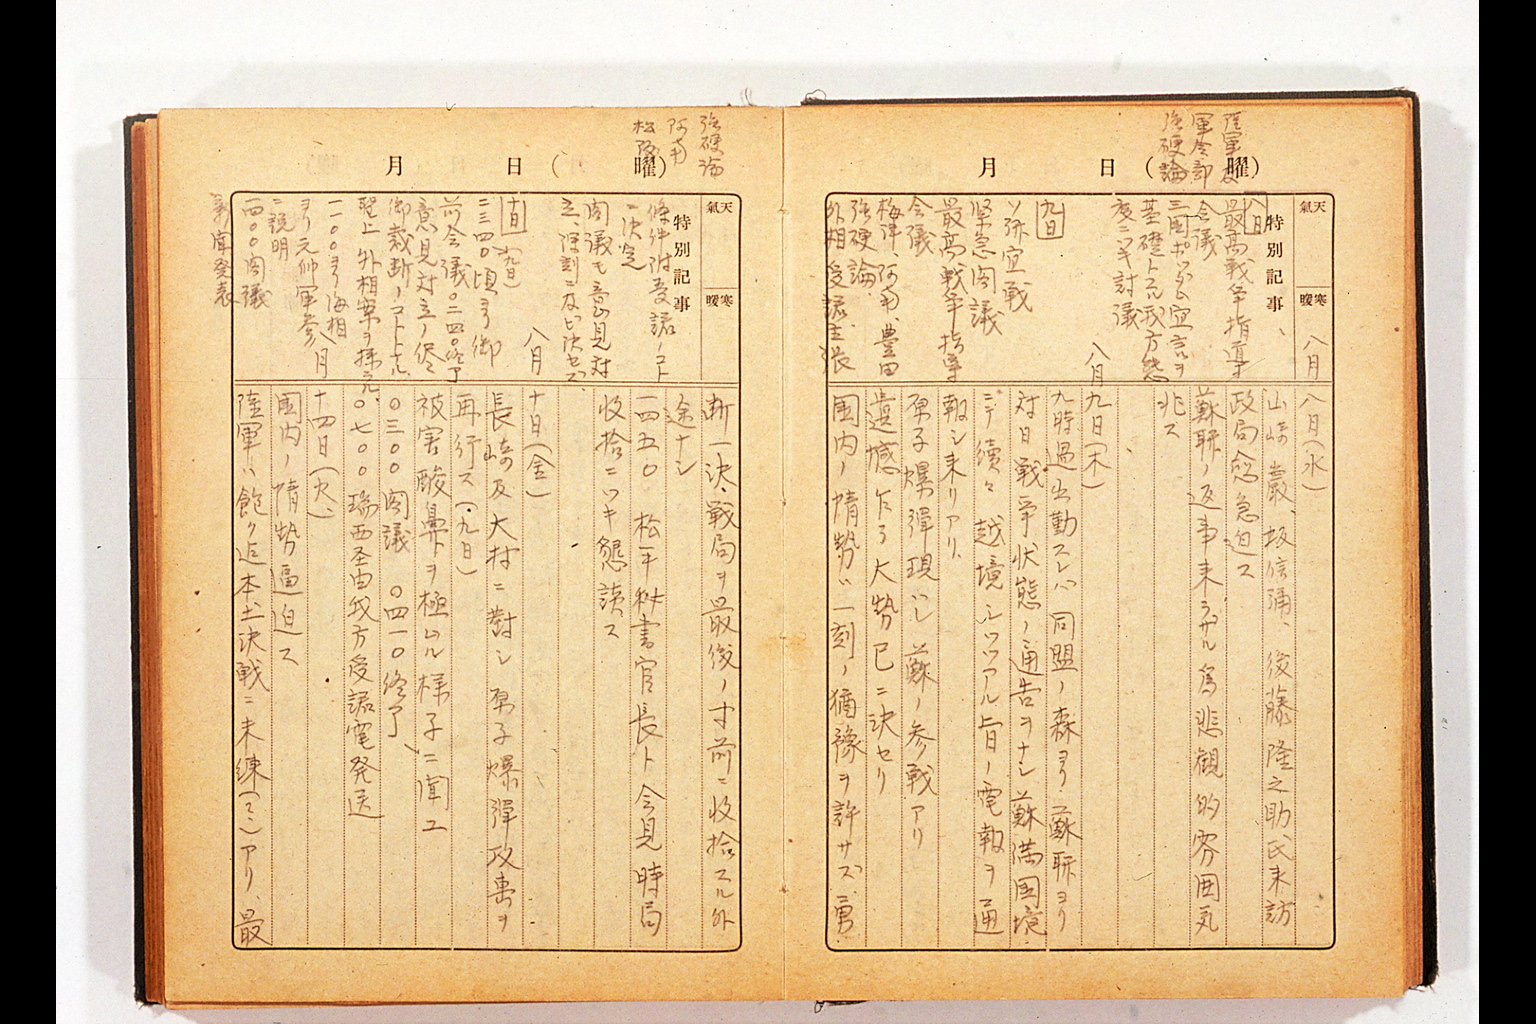 月 日 ( 曜)
強硬論
軍令部
天氣
寒暖
特別記事
八日
最高戦争指導
会議
三国ポツダム宣言ヲ
基礎トスル我方態
度ニツキ討議
九日
ソ弥宣戦
緊急閣議
最高戦争指導
会議
梅津、阿南、豊田
強硬論、
外相受諾主張
八月八日(水)
山崎巌、坂信弥、後藤隆之助氏来訪
政局愈急迫ス
蘇聯ノ返事来ラザル為悲観的雰囲気
兆ス
八月九日(木)
九時過出勤スレバ同盟ノ森ヨリ蘇聯ヨリ
対日戦争状態ノ通告ヲナシ蘇満国境
ニテ続々越境シツツアル旨ノ電報ヲ通
報シ来リアリ、
原子爆弾現ハレ蘇ノ参戦アリ
遺憾乍ラ大勢已ニ決セリ
国内ノ情勢ハ一刻ノ猶豫ヲ許サズ、勇
月 日 ( 曜)
強硬論
阿南
松阪
天氣
寒暖
特別記事
條件附受諾ノコト
ニ決定
閣議モ意見対
立、深刻ニナリ決セズ、
十日(九日)
二三四〇頃ヨリ御
前会議〇二四〇終了
意見対立ノ侭
御裁断ノコトトナル、
聖上外相案ヲ採ラル
一一〇〇ヨリ海相
ヨリ元帥軍参
ニ説明
一四〇〇閣議
新聞発表
断一決、戦局ヲ最後ノ寸前ニ收拾スル外
途ナシ
一四五〇 松平秘書官長ト会見時局
收拾ニツキ懇談ス
八月十日(金)
長崎及大村ニ對シ原子爆弾攻撃ヲ
再行ス(九日)
被害酸鼻ヲ極ムル様子ニ聞エ
〇三〇〇閣議 〇四一〇終了、
〇七〇〇瑞西経由我方受諾電発送
八月十四日(火)
国内ノ情勢逼迫ス
陸軍ハ飽ク迄本土決戦ニ未練(ミミ)アリ、最